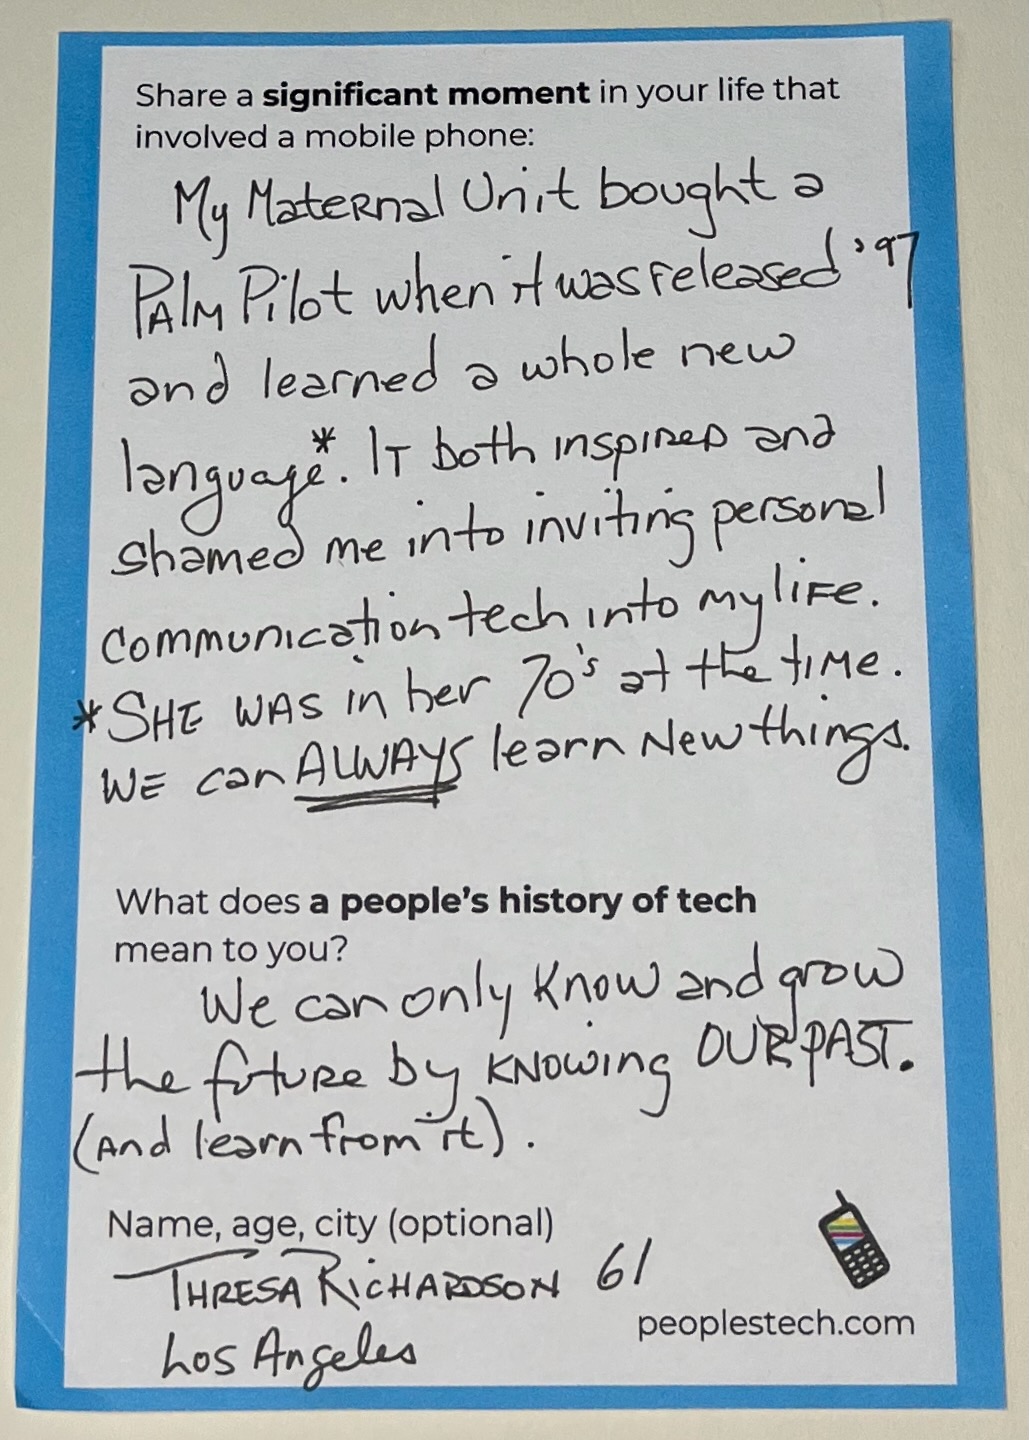 Share a significant moment in your life that
involved a mobile phone:
My Maternal Unit bought a
PAlM Pilot when it was released '97
and learned a whole new
language*. IT both inspired and
shamed me into inviting personal
communication tech into my life.
*SHE WAS in her 70's at the time.
WE can ALWAYS learn New things.
What does a people's history of tech
mean to you?
We can only know and grow
the future by KNOWING OUR PAST.
(And learn from it).
Name, age, city (optional)
THRESA RICHARDSON 61
Los Angeles
peoplestech.com